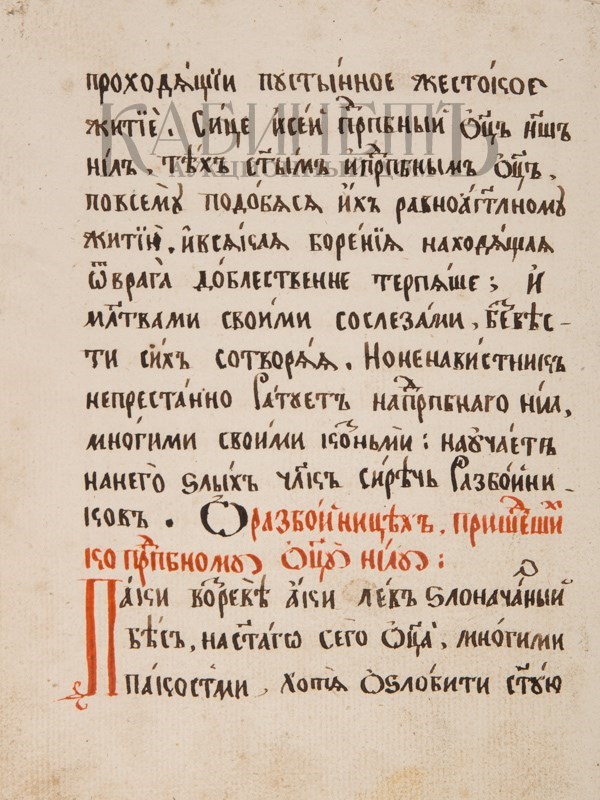 проходѧ́щїи пꙋсты́нное жесто́кое
житїѐ. Си́це и҆се́й пр҃пбный ѻ҆ц҃ъ на́шъ
ни́лъ, тѣ́хъ ст҃ы́мъ и҆пр҃пбнымъ ѻ҆ц҃ъ,
повсемꙋ̀ подо́бѧсѧ и҆́хъ равноа҆́гг҃лномꙋ
житїю̀, и҆всѧ́каѧ боре́нїѧ находѧ́щаѧ
ѿврага̀ до́блественне терпѧ́ше; И҆
мл҃твами свои́ми сослеза́ми, бе́звѣс-
ти си́хъ сотворѧ́ѧ. Но ненави́стникъ
непреста́нно ра́тꙋетъ напр҃пбнаго ни́ла,
мно́гими свои́ми ко́зньми: наꙋча́етъ
нанего̀ ѕлы́хъ чл҃къ си́рѣчь разбо́йни-
ковъ. Ѻ҆ разбо́йницѣхъ, прише́дши
ко пр҃пбномꙋ ѻ҆ц҃ꙋ̀ ни́лꙋ:
Па́ки во́древѣ а҆́ки ле́въ ѕлонача́лный
бѣ́съ, наст҃а́гѡ сего̀ ѻ҆ц҃а̀, мно́гими
па́костми, хотѧ̀ ѻ҆ѕло́бити ст҃ꙋ́ю
КАБИНЕТЪ